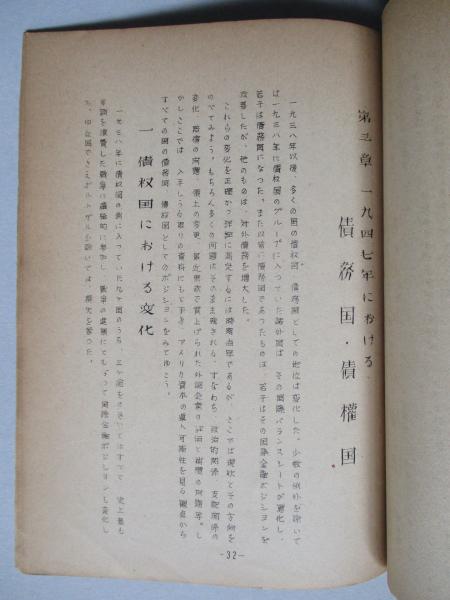 第三章 一九四七年における
債務国・債権国
一九三八年以後、多くの国の債権国、債務国としての地位は変化した。少数の例外を除いて
ば一九三八年に債権国のグループに入っていた諸外国は、その国際バランスシートが悪化し、
若干は債務国になつた。また以前に債務国であつたものは、若干はその国際金融ポジションを
改善したが、他のものは、対外債務を増大した。
これらの変化を正確かつ詳細に測定するには時期尚早であるが、ここでは現状とその方向を
のべてみよう。もちろん多くの問題はそのまま残される。すなわち、政治的関係、支配関係の
変化、賠償の問題、領土の変更、最近恩欲で買上げられた外国企業の 問題等。し
かしここでは、入手しうる限りの資料にもとずき、アメリカ資本の導入可能性を見る観点から
すべての国の債務国、債権国としてのポジションをみてゆこう。
一 債权国における変化
一九三八年に債权国の列に入っていた九ヶ国のうち、三ヶ国をのぞいてはすべて、史上最も
を浪費した戦争に積極的に参加し、戦争の進展にともなつて国際金融ポジションも変化し
た。中立国でさえポルトガルを除いては、損失を蒙つた。
-32-